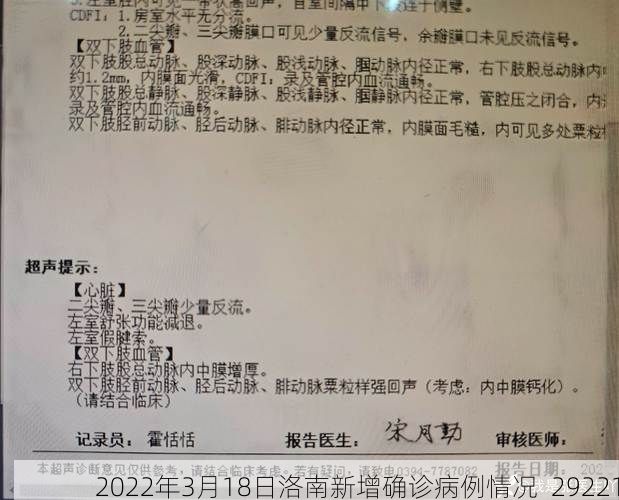 CDFI：1.房室水平无分流。
2.二尖瓣、三尖瓣膜口可见少量反流信号，余瓣膜口未见反流信号。
【双下肢血管】
双下肢股总动脉、股深动脉、股浅动脉、腘动脉内径正常，右下肢股总动脉内
约1.2mm，内膜面光滑，CDFI：录及管腔内血流通畅。
双下肢股总静脉、股深静脉、股浅静脉、腘静脉内径正常，管腔压之闭合，内
录及管腔内血流通畅。
双下肢胫前动脉、胫后动脉、腓动脉内径正常，内膜面毛糙，内可见多处粟粒
超声提示：
【心脏】
二尖瓣、三尖瓣少量反流。
左室舒张功能减退。
左室假腱索。
【双下肢血管】
右下肢股总动脉内中膜增厚。
双下肢胫前动脉、胫后动脉、腓动脉粟粒样强回声（考虑：内中膜钙化）。
（请结合临床）
记录员： 霍恬恬 报告医生： 宋月勤 审核医师：
本超声诊断意见仅供参考。若有疑问：请致电0394-7767089 报告日期： 202
2022年3月18日洛南新增确诊病例情况_29221